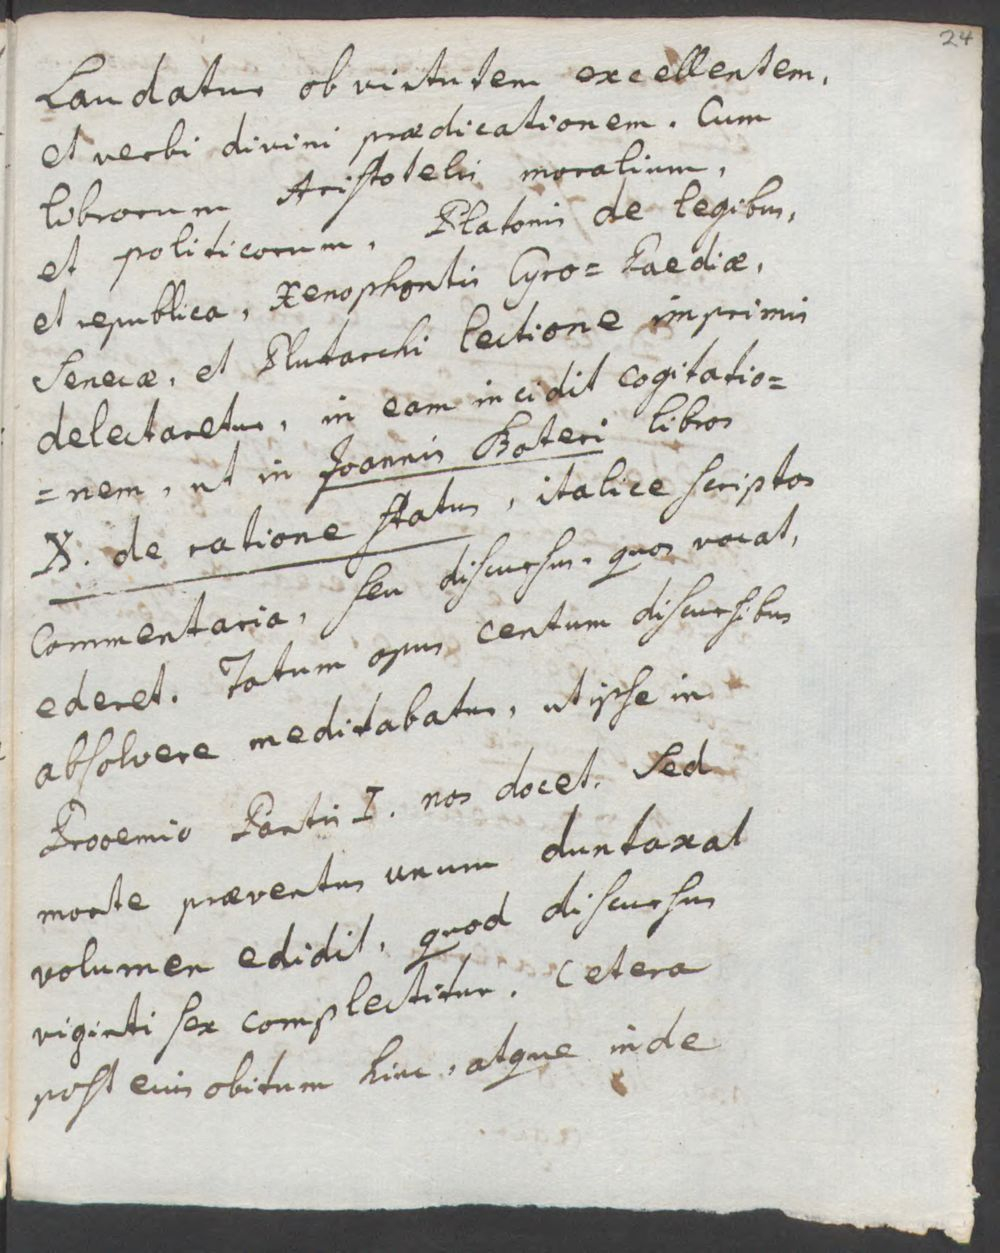 24
Laudatur ob virtutem excellentem,
et verbi divini prædicationem. Cum
librorum Aristotelis moralium,
et politicorum, Platonis de legibus,
et republica, Xenophontis Cyro=Paediæ,
Senecæ, et Plutarchi lectione imprimis
delectaretur, in eam incidit cogitatio=
=nem, ut in Joannis Boteri libros
X. de ratione status, italice scriptos
Commentaria, seu discursus, quos vocat,
ederet. Totum opus centum discursibus
absolvere meditabatur, ut ipse in
Prooemio Partis I. nos docet. Sed
morte præventus unum duntaxat
volumen edidit, quod discursus
viginti sex complectitur. Cetera
post eius obitum hinc, atque inde